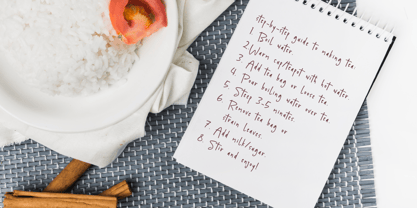 step-by-step guide to making tea.
1 Boil water.
2 Warm cup/teapot with hot water.
3 Add tea bag or loose tea.
4 Pour boiling water over tea.
5 Steep 3-5 minutes.
6 Remove tea bag or
strain leaves.
7 Add milk/sugar.
8 Stir and enjoy!